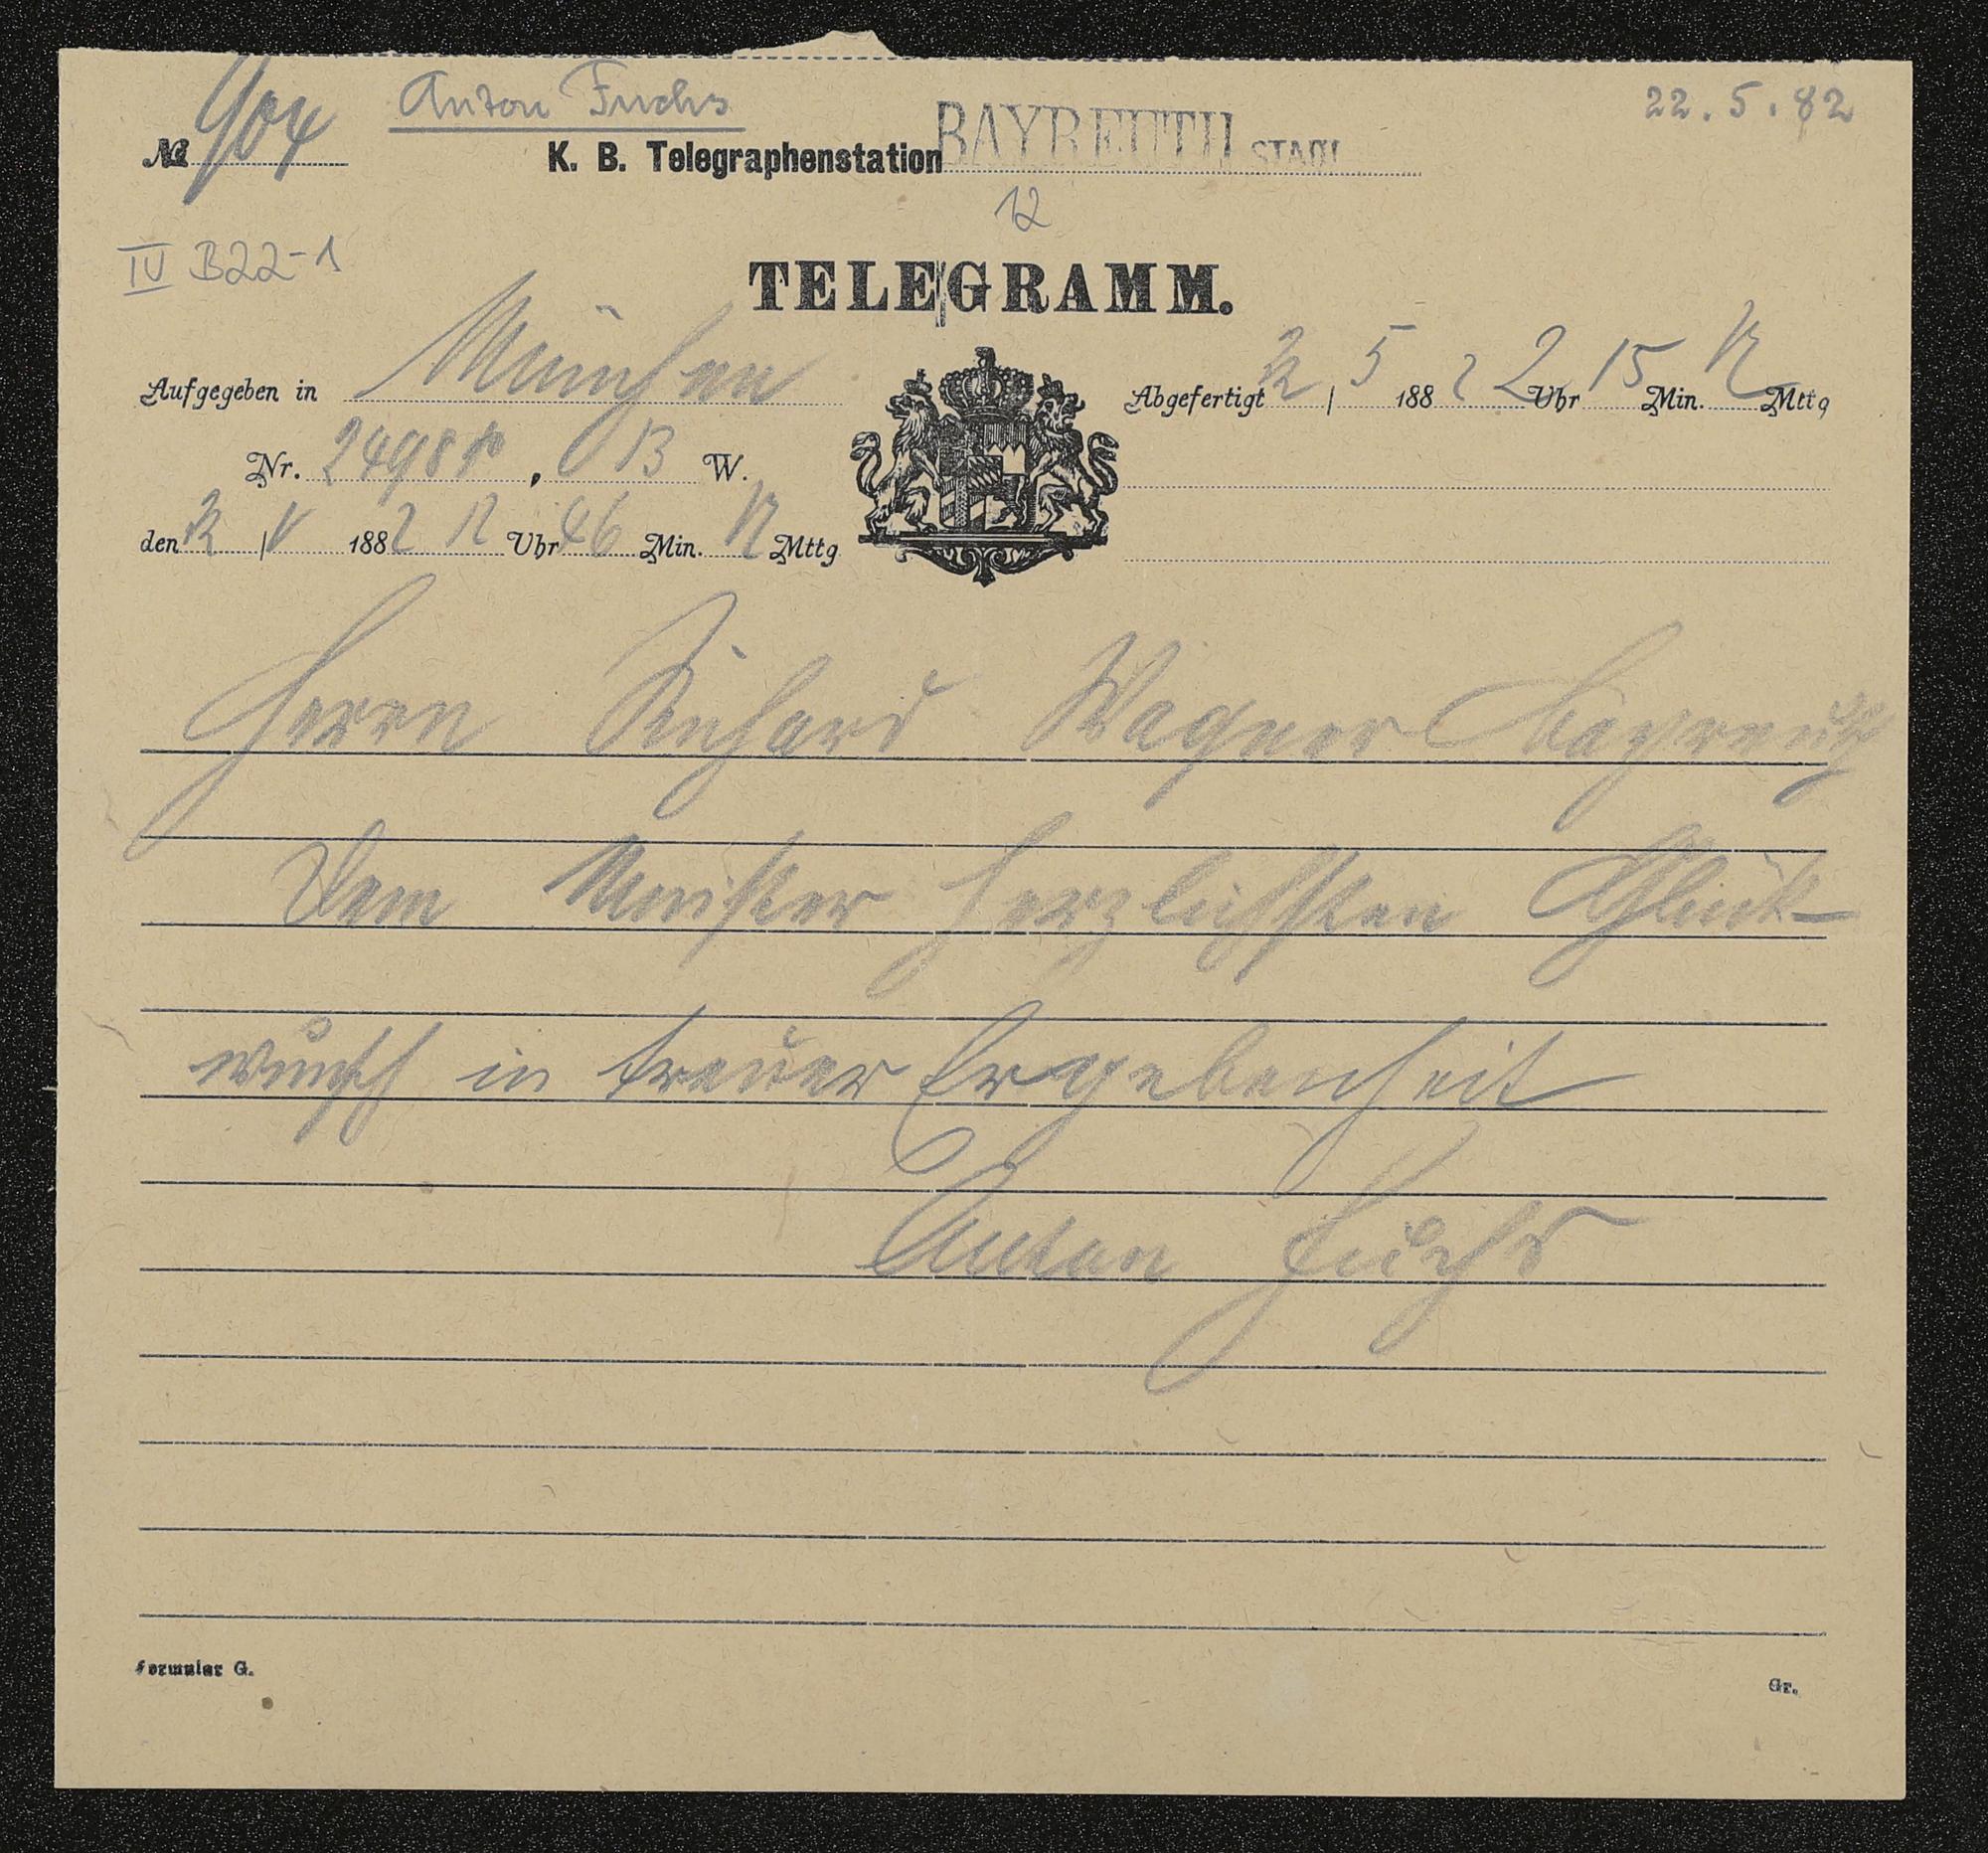 Anton Fuchs
22.5.82
№ 904
K. B. Telegraphenstation BAYREUTH STADT
12
IV B22-1
TELEGRAMM.
Aufgegeben in München
Abgefertigt 22/5 1882 2 Uhr 15 Min. N Mttg
Nr. , 13 W.
den 22/V 1882 12 Uhr 46 Min. N Mttg
Herrn Richard Wagner Bayreuth
Dem Meister herzlichsten Glück-
wunsch in treuer Ergebenheit
Anton Fuchs
Formular G.
Gr.